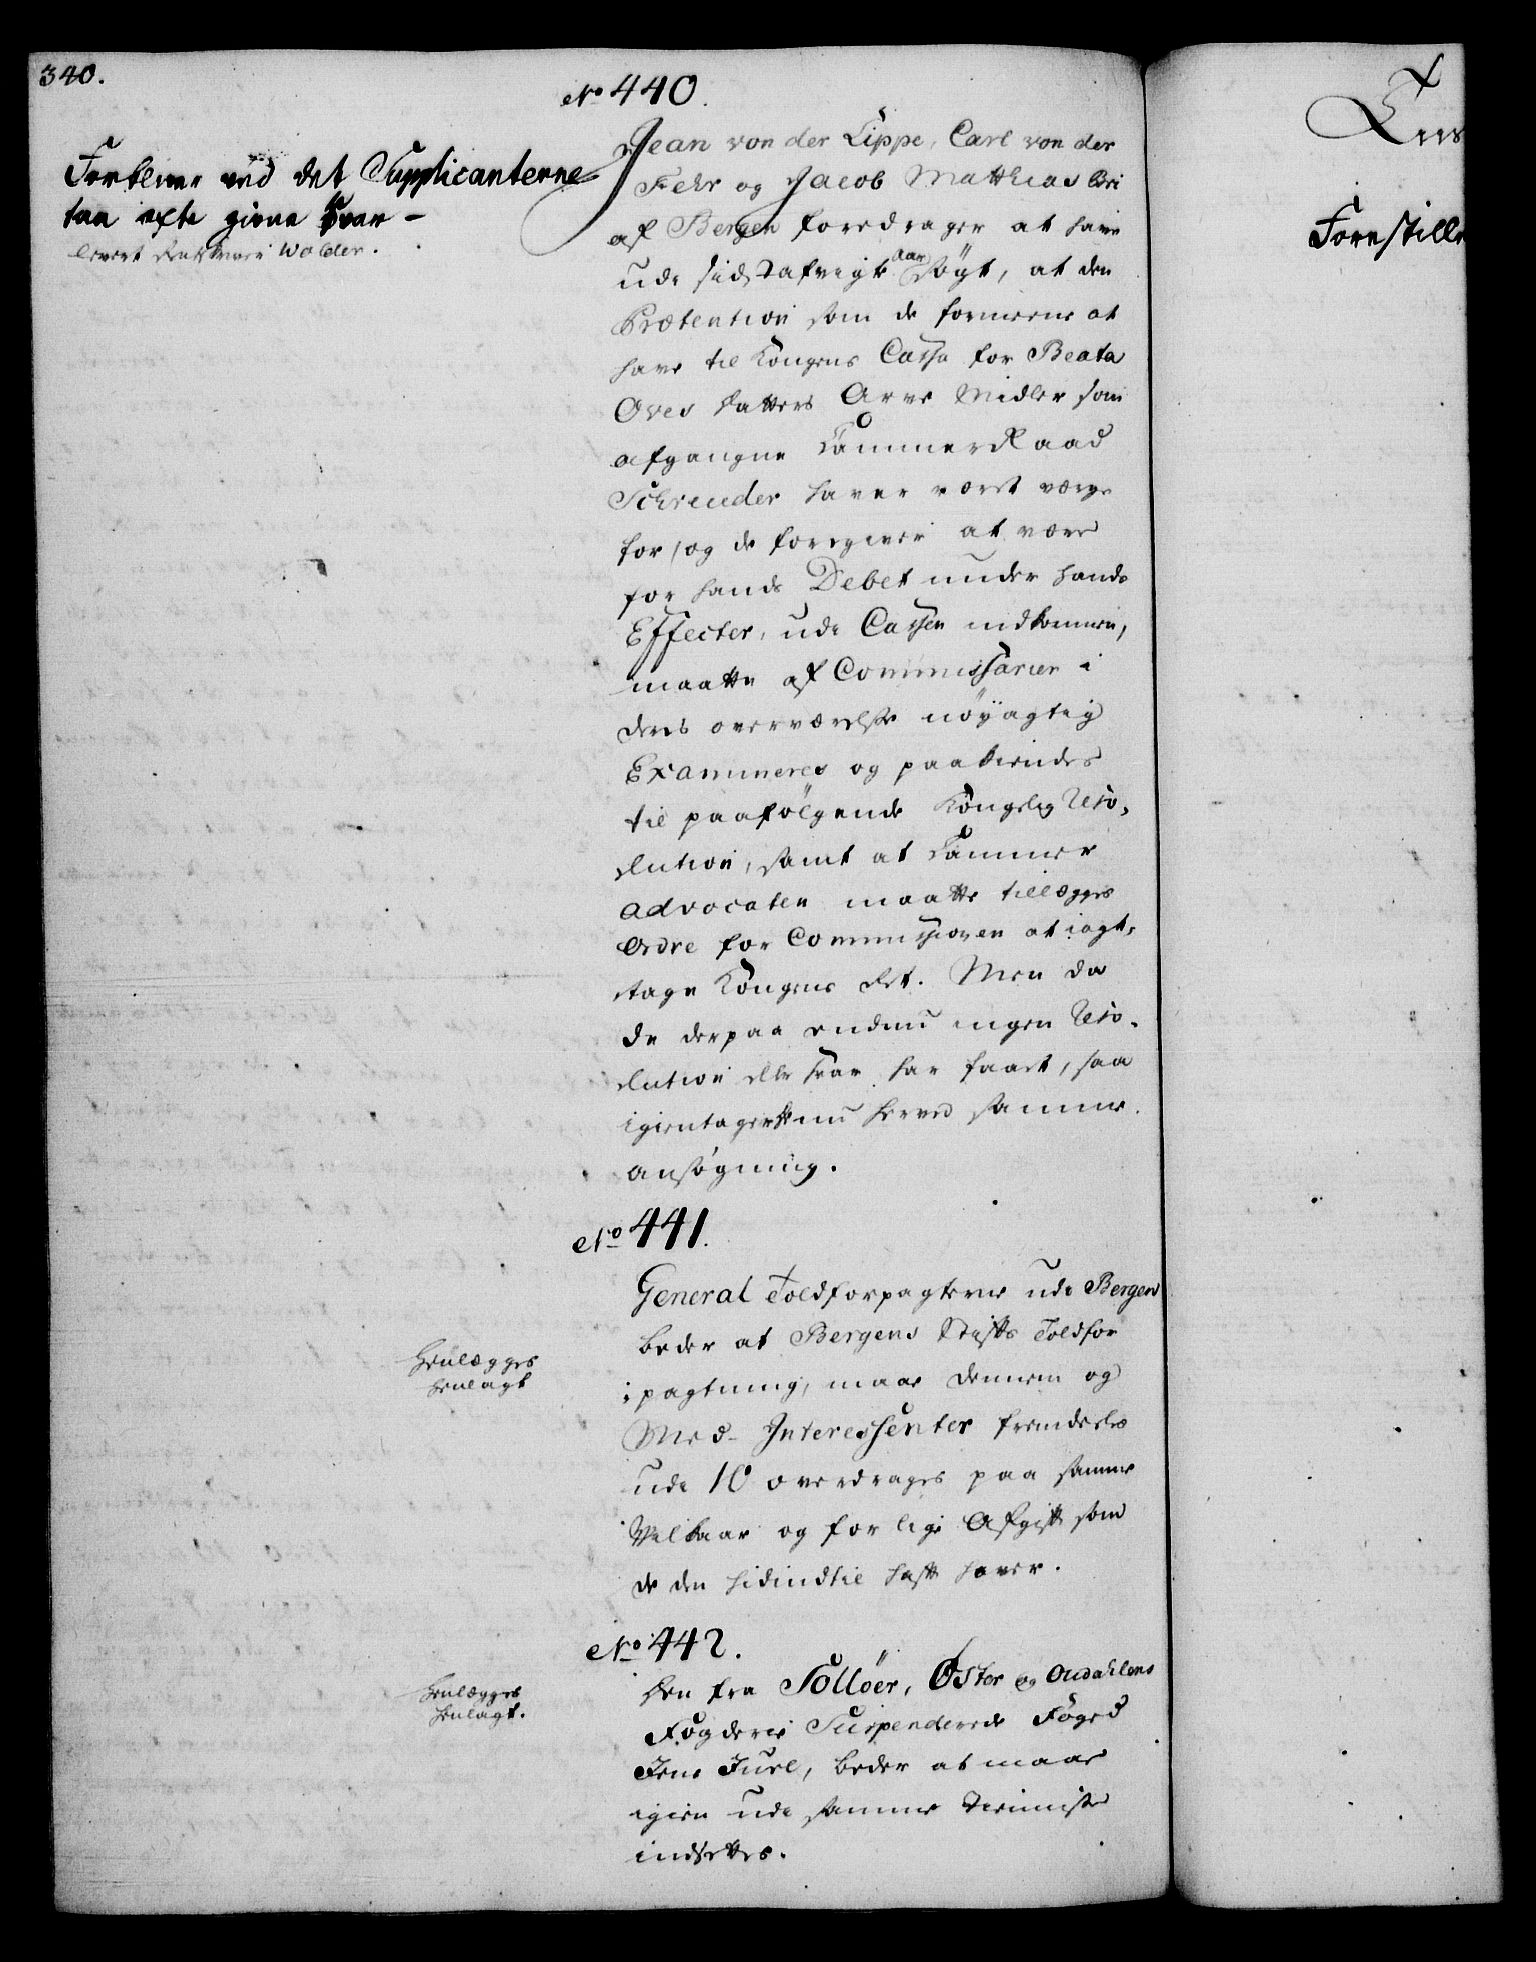 340.
No 440.
Forbliver ved det Supplicanterne
taa efte givne Svar –
levert Rentskriver Wolder.
Jean von der Lippe, Carl von der
Fehr og Jacob Matthias
af Bergen foredrager at have
udi sidstafvigte Aar søgt, at den
Prætention som de formeene at
have til Kongens Cassa for Beata
Oves datters Arve Midler som
afgangne CammerRaad
Schreuder haver været værge
for, og de foregiver at være
for hands Debet under hands
Effecter, udi Cassen indkommen,
maatte af Commissarier i
deres overværelse nöyagtig
Examineres og paakiendes
til paafölgende Kongelig Reso-
lution, samt at Cammer
Advocaten maatte tillægges
Ordre for Commissionen at iagt-
tage Kongens Ret. Men da
de derpaa endnu ingen Reso-
lution eller Svar har faaet, saa
igientager de nu herved samme
ansøgning.
No 441.
General Toldforpagterne udi Bergen
beder at Bergens Stifts Toldfor
pagtning, maae dennem og
Med-Interessenter fremdeeles
udi 10 overdrages paa samme
Vilkaar og for lige Afgift som
de den hidindtil haft haver.
Henlægges
henlagt
No 442.
Den fra Solloer, Öster og Oudahlens
Fogderie Suspenderede Foged
Jens Juel, beder at maae
igien udi samme tieniste
indsettes.
Henlægges
henlagt.
Forestille